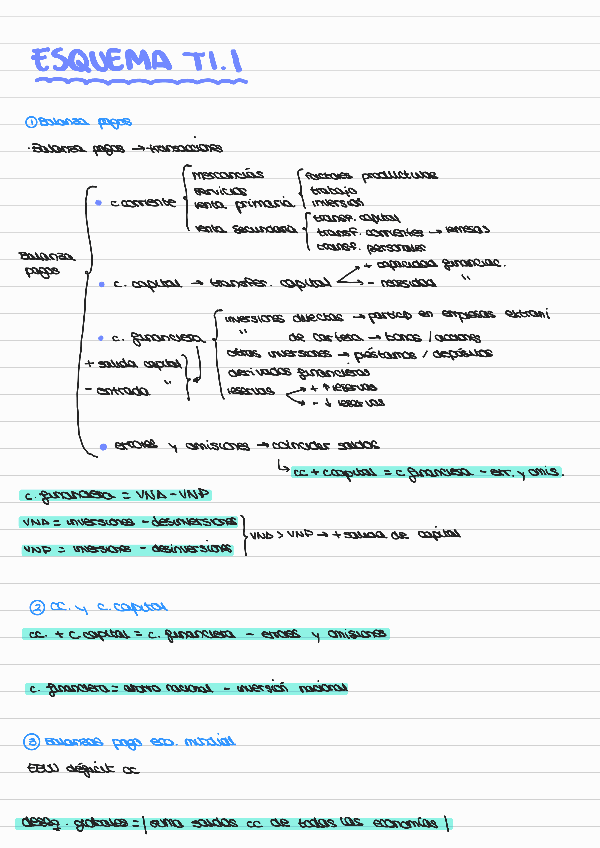 ESQUEMA T1.1
① Balanza pagos
· Balanza pagos → transacciones
Balanza pagos
• c. corriente
mercancías
servicios
renta primaria
factores productivos
trabajo
inversión
renta secundaria
transf. capital
transf. corrientes → remesas
transf. personales
• c. capital → transfer. capital
+ capacidad financiac.
- necesidad "
• c. financiera
+ salida capital
- entrada "
inversiones directas → particip en empresas extranj
" de cartera → bonos / acciones
otras inversiones → préstamos / depósitos
derivados financieros
reservas
+ ↑ reservas
- ↓ reservas
• errores y omisiones → coincidir saldos
↳ cc + c capital = c financiera - err. y omis.
c. financiera = VNA - VNP
VNA = inversiones - desinversiones
VNP = inversiones - desinversiones
VNA > VNP → + salida de capital
② cc. y c. capital
cc. + c. capital = c. financiera - errores y omisiones
c. financiera = ahorro nacional - inversión nacional
③ Balanzas pago eco. mundial
EEUU déficit cc
deseq. globales = | suma saldos cc de todas las economías |